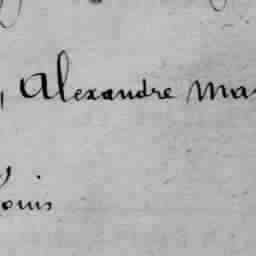 , Alexandre Ma
ouis